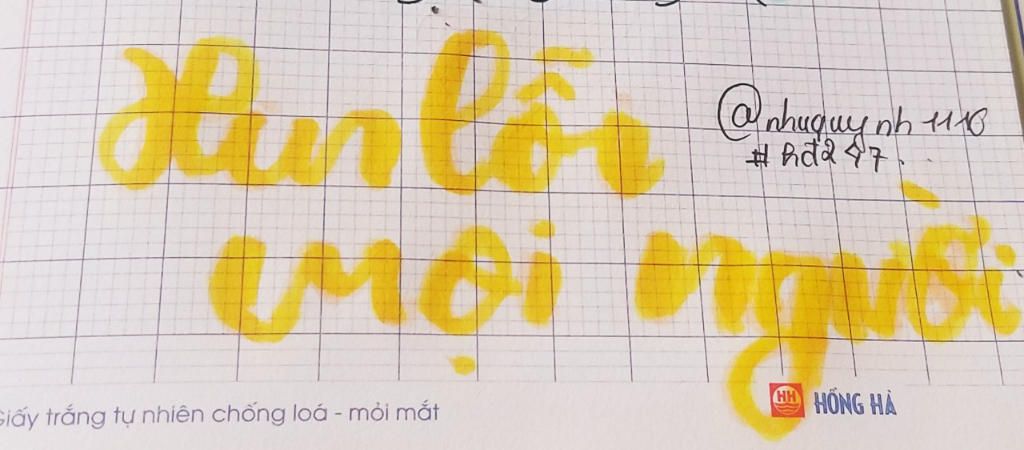 Hun lồn
@nhuquynh1110
#hđ247.
mọi người
Giấy trắng tự nhiên chống loá - mỏi mắt
HH HỒNG HÀ